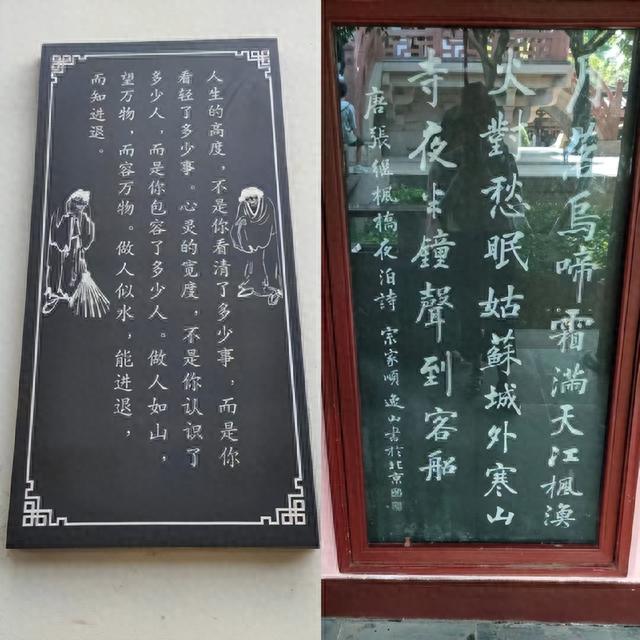 人生的高度，不是你看清了多少事，而是你
看轻了多少事。心灵的宽度，不是你认识了
多少人，而是你包容了多少人。做人如山，
望万物，而容万物。做人似水，能进退，
而知进退。
月落烏啼霜滿天江楓漁
火對愁眠姑蘇城外寒山
寺夜半鐘聲到客船
唐張繼楓橋夜泊詩 宗家順逸山書於北京